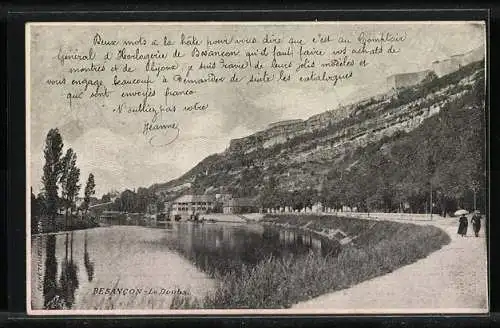 Deux mots à la hâte pour vous dire que c'est au Comptoir
Général d'Horlogerie de Besançon qu'il faut faire vos achats de
montres et de bijoux. Je suis ravie de leurs jolis modèles et
vous engage beaucoup à demander de suite les catalogues
qui sont envoyés franco.
N'oubliez pas votre
Jeanne
BESANÇON - Le Doubs.